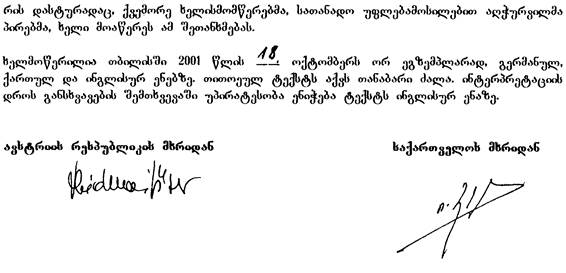 რის დასტურადაც, ქვემორე ხელისმომწერებმა, სათანადო უფლებამოსილებით აღჭურვილმა
პირებმა, ხელი მოაწერეს ამ შეთანხმებას.
ხელმოწერილია თბილისში 2001 წლის 18 ოქტომბერს ორ ეგზემპლარად, გერმანულ,
ქართულ და ინგლისურ ენებზე. თითოეულ ტექსტს აქვს თანაბარი ძალა. ინტერპრეტაციის
დროს განსხვავების შემთხვევაში უპირატესობა ენიჭება ტექსტს ინგლისურ ენაზე.
ავსტრიის რესპუბლიკის მხრიდან საქართველოს მხრიდან